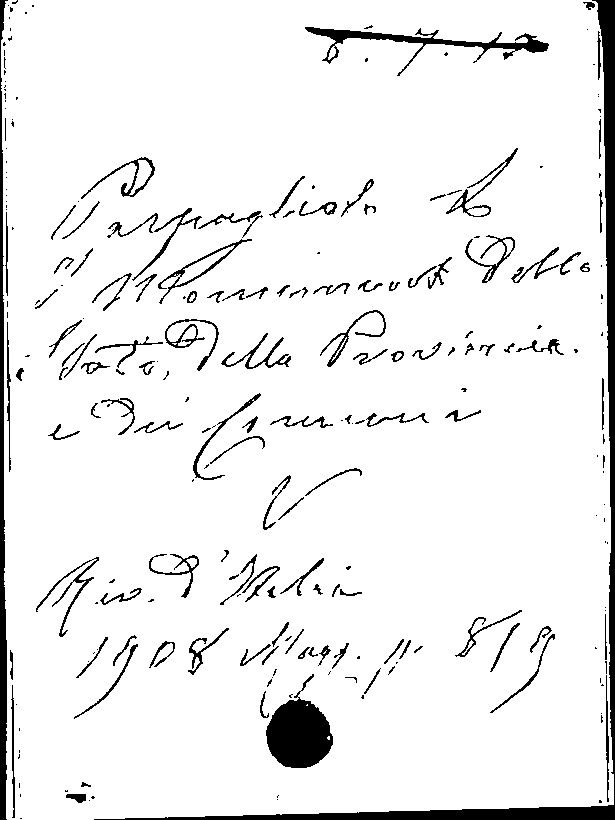 8. 7. 15
Parpagliolo L
I Monumenti dello
Stato, della Provincia
e dei Comuni
V
Riv. d'Italia
1908 Magg. p. 819